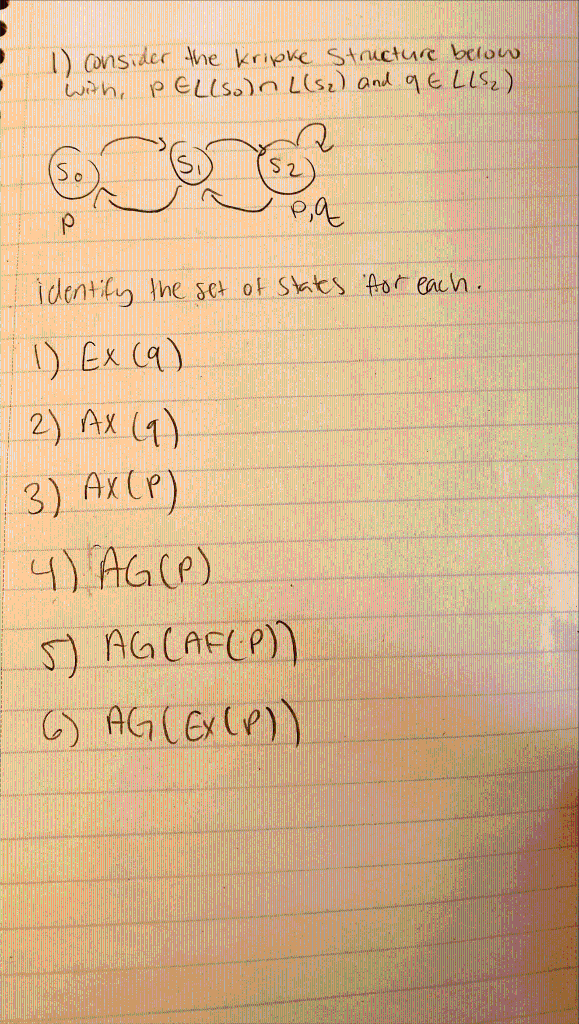 1) consider the kripke structure below
with, p ∈ L(S0) ∩ L(S2) and q ∈ L(S2)
S0 S1 S2
p p,q
identify the set of states for each.
1) EX (q)
2) AX (q)
3) AX(P)
4) AG(P)
5) AG(AF(P))
6) AG(EX(P))